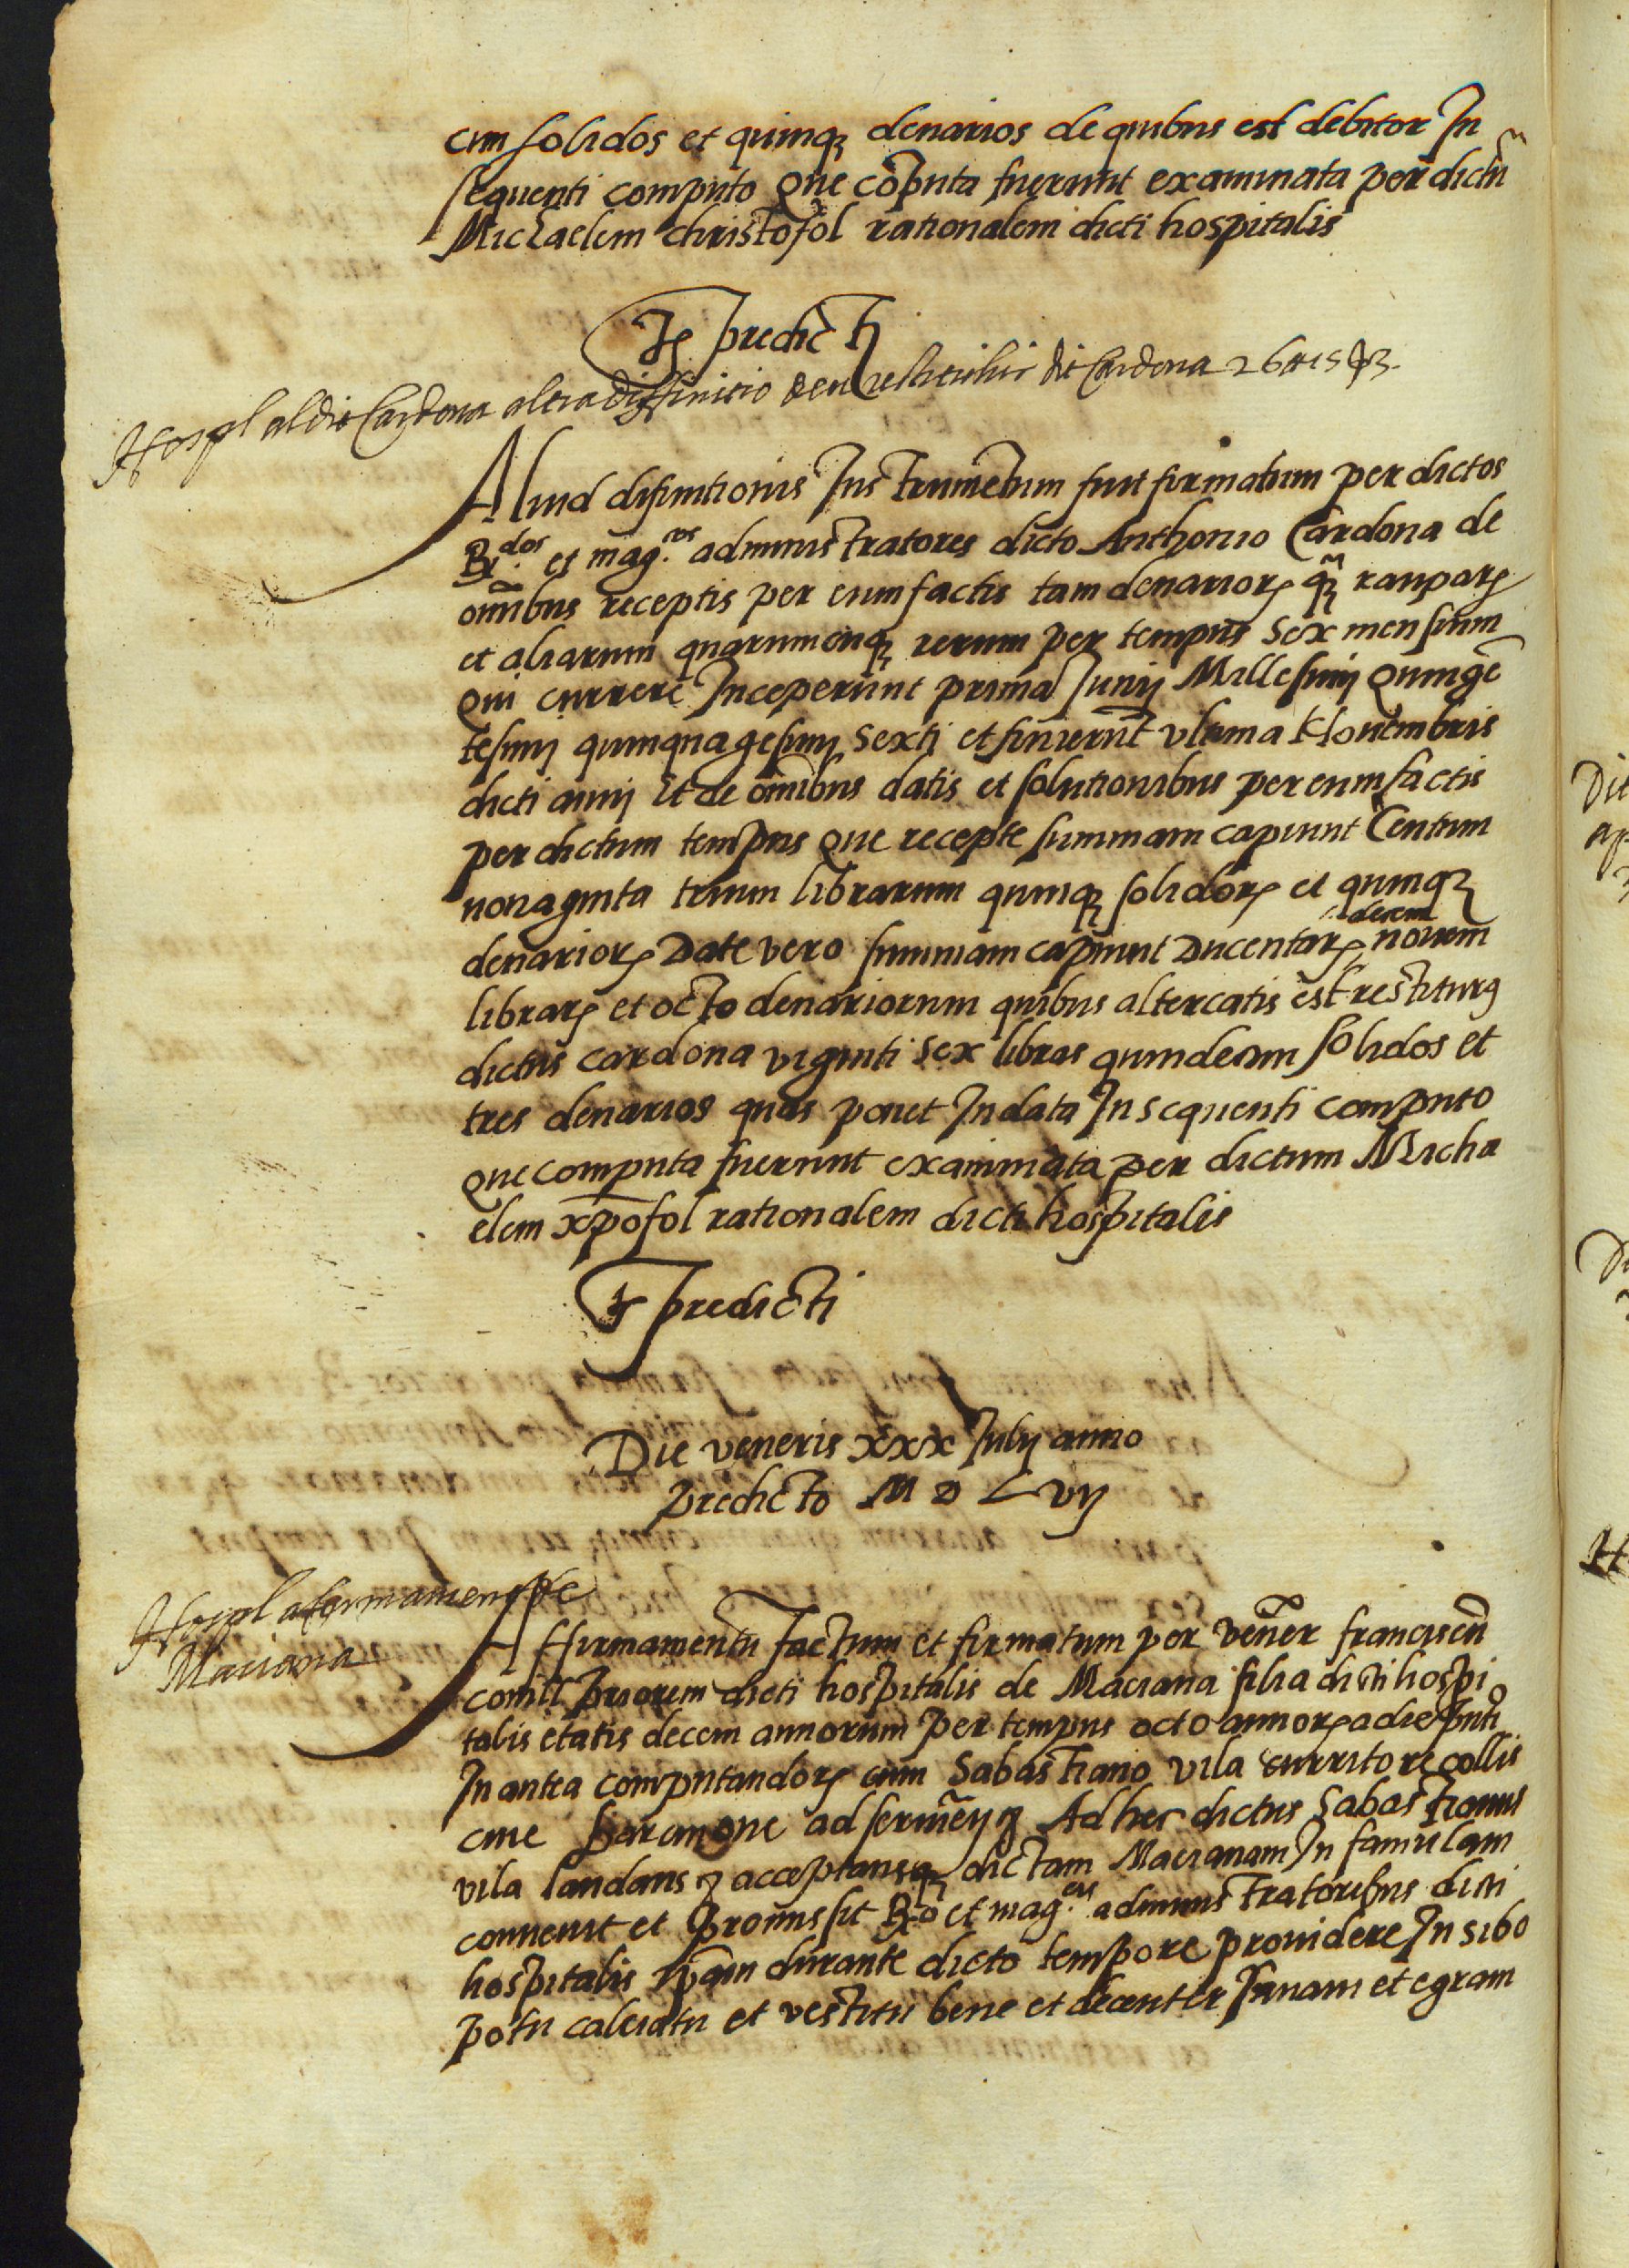 cim solidos et quinqꝫ denarios de quibus est debitor In
sequenti computo Que cōputa fuerunt examinata per dictū
Michaelem christofol rationalem dicti hospitalis
Ts predicti
Hospl al dit Cardona altra diffinitio de restituhir dit Cardona 26 ₶ 15 ß 3
Aliud difinitionis Instrumētum fuit firmatum per dictos
R.dos et mag.cos administratores dicto Anthonio Cardona de
om̄ibus receptis per eum factis tam denarioꝝ q̄ꝫ raupaꝝ
et aliarum quarumcunqꝫ rerum per tempus sex mensium
Qui currere Inceperunt prima Junij Millesimj Quingē
tesimj quinquagesimj sexti et finierūt vltima Nouembris
dicti annj Et de om̄ibus datis et solutionibus per eum factis
per dictum tempus Que recepte summam capiunt Centum
nonaginta trium librarum quinqꝫ solidoꝝ et quinqꝫ
denarioꝝ Date vero summam capiunt Ducentaꝝ decem novem
libraꝝ et octo denariorum quibus altercatis est restiturꝰ
dictus cardona viginti sex libras quindecim solidos et
tres denarios quas ponet In data In sequenti computo
Que computa fuerunt examinata per dictum Micha
elem xp̄ofol rationalem dicti hospitalis
Ts predicti
Die veneris xxx Julij anno
predicto M D L vij
Hospl afermament de
Maciana
Affirmamentū factum et firmatum per vēner franciscū
comill priorem dicti hospitalis de Maciana filia dicti hospi
talis etatis decem annorum per tempus octo annoꝝ a die p̄nti
In antea computandoꝝ cum Sabastiano vila curritore collis
ciue Barcinone ad Ad hec dictus Sabastianus
vila laudans acceptansqꝫ dictam Macianam In famulam
conuenit et promissit R.do et mag.cis administratoribus dicti
hospitalis ip̄am durante dicto tempore prouidere In sibo
potu calciatu et vestitu bene et decenter sanam et egram